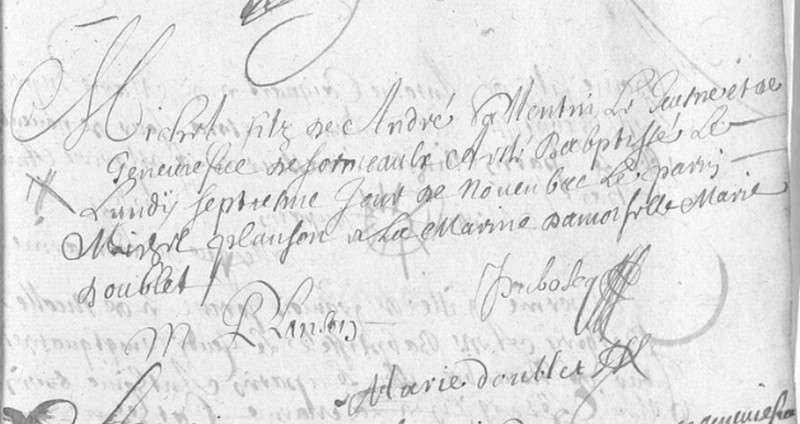 Michel filz de André Vallentin Le Jeusne et de
Geneviefve desforneaulx a esté Baptissé Le
Lundy septiesme Jour de Novenbre Le parin
Michel plançon et La Marine damoiselle Marie
Doublet
M Planson
Marie doublet